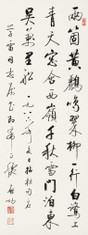 兩箇黃鸝鳴翠柳一行白鷺上
青天窗含西嶺千秋雪門泊東
吳萬里船一九八
啟功